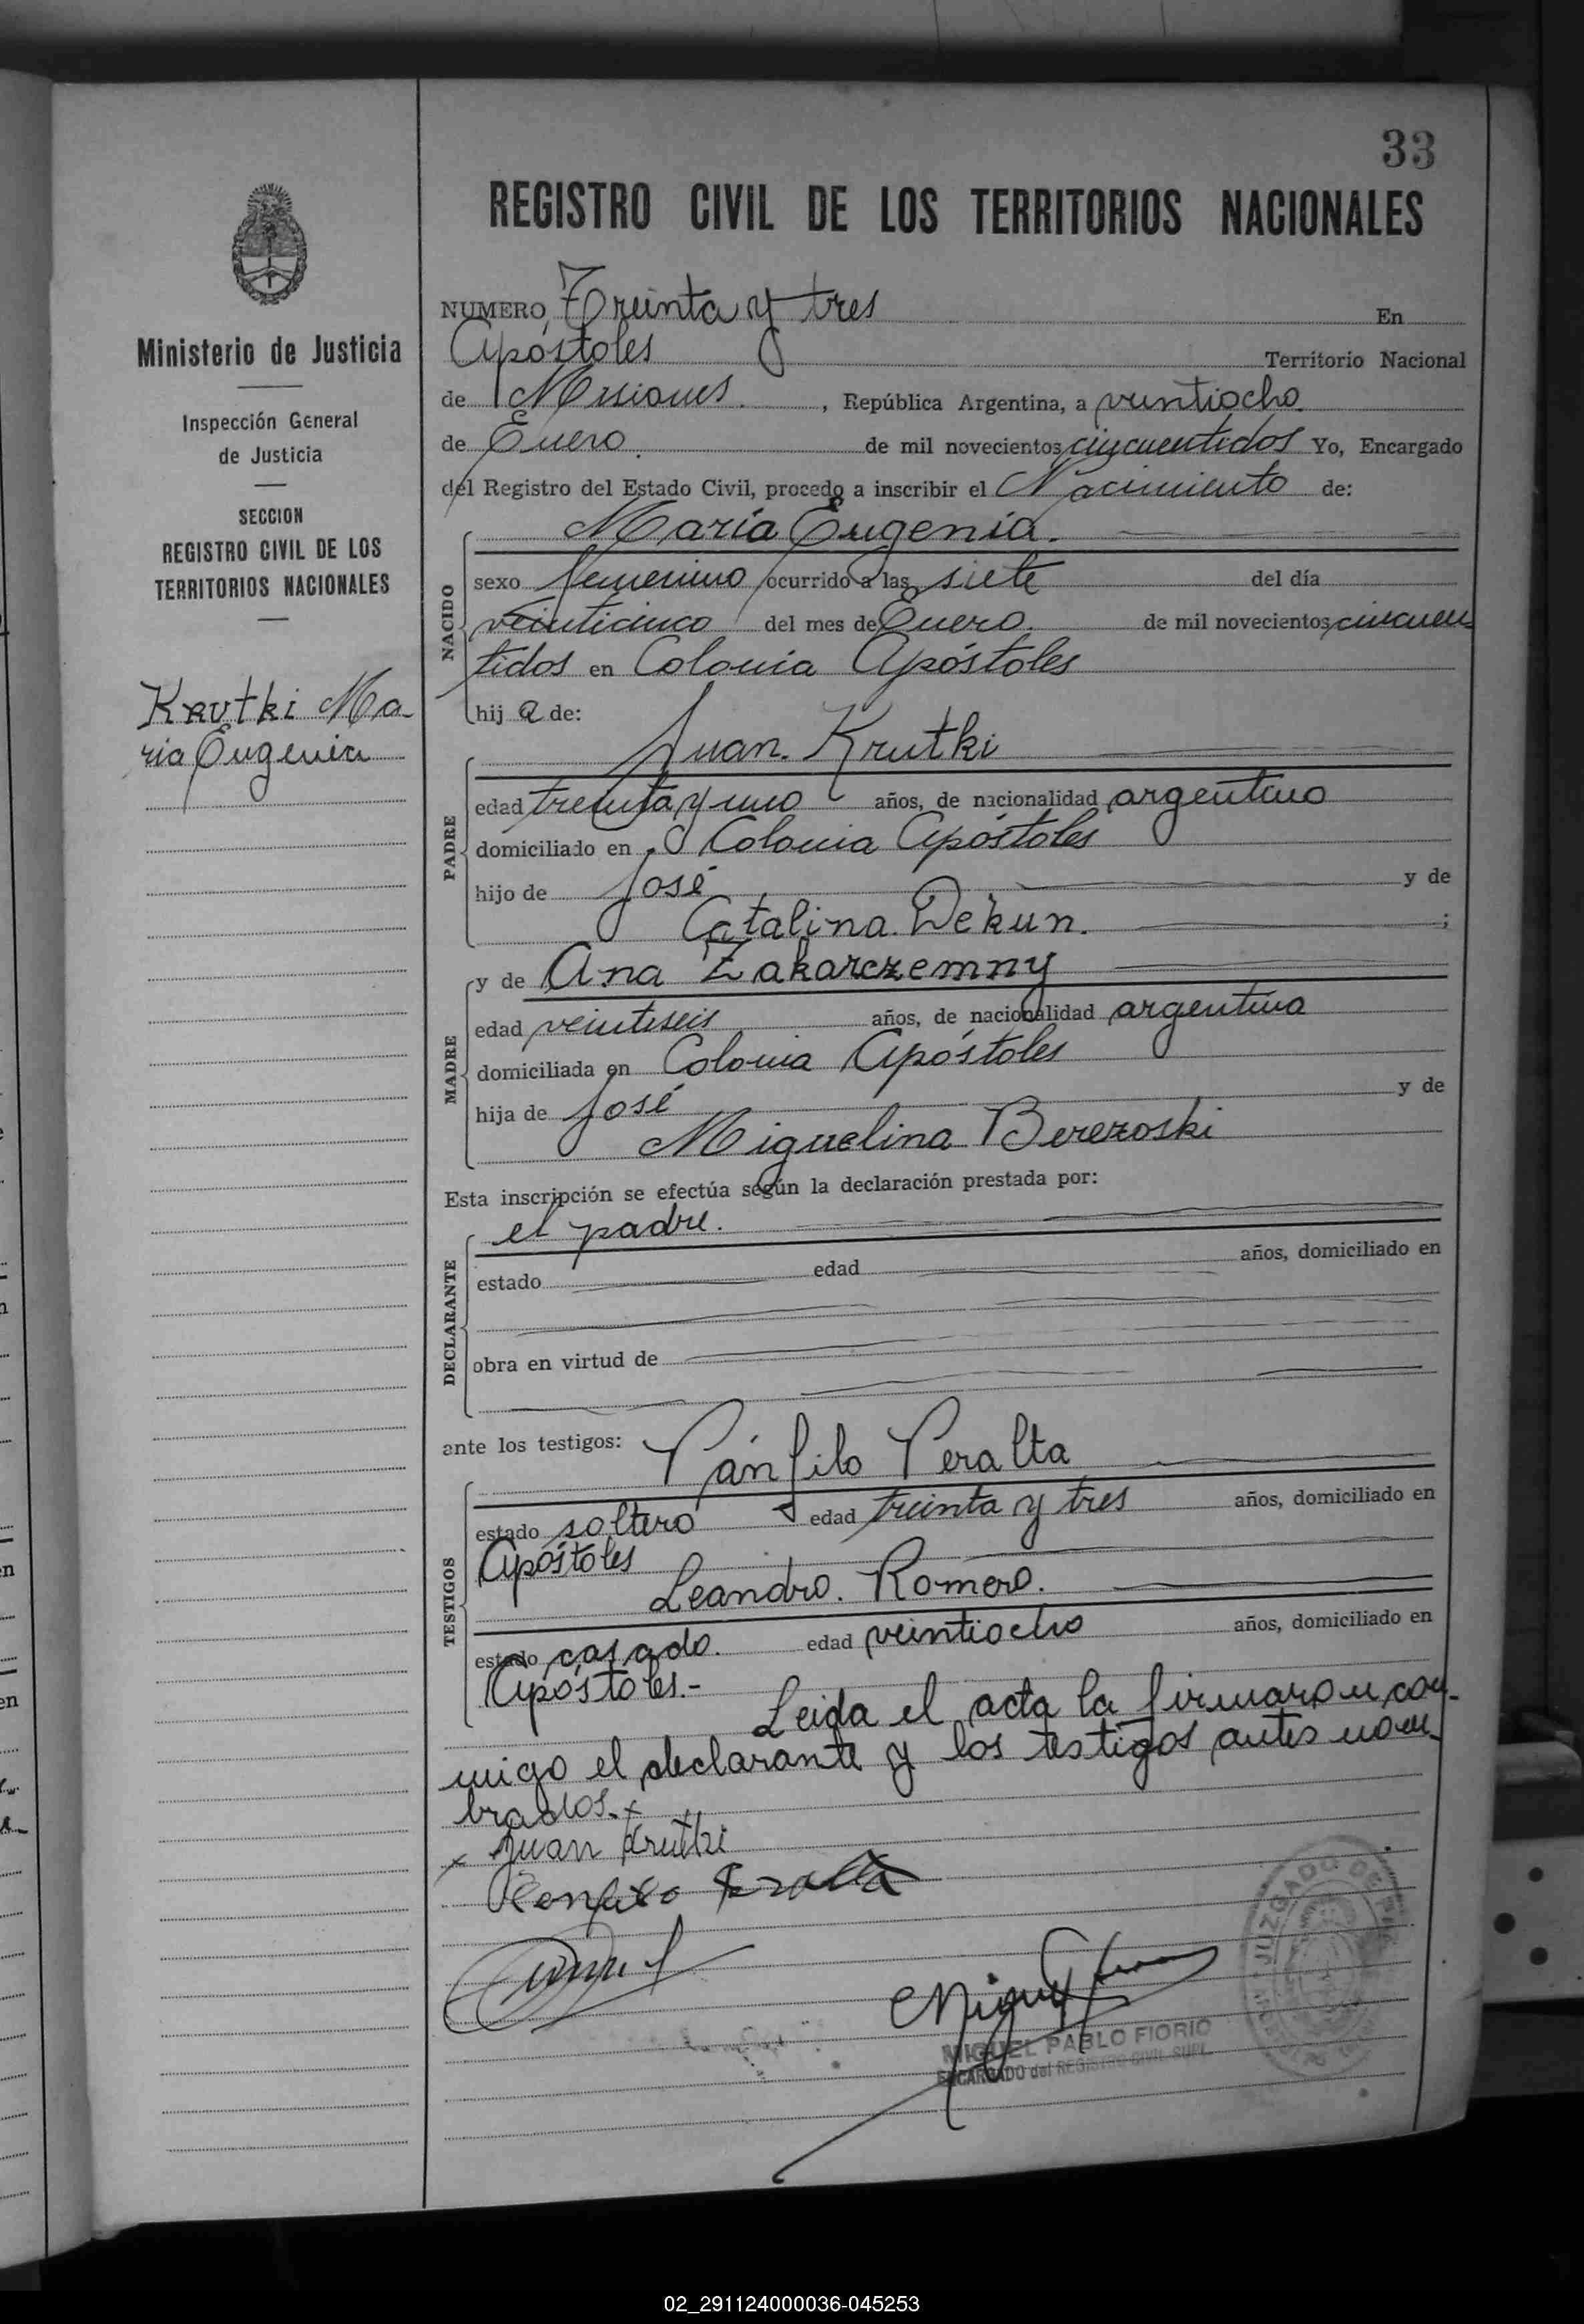 33
REGISTRO CIVIL DE LOS TERRITORIOS NACIONALES
Ministerio de Justicia
Inspección General
de Justicia
SECCION
REGISTRO CIVIL DE LOS
TERRITORIOS NACIONALES
Krutki Ma-
ria Eugenia
NUMERO Treinta y tres En
Apóstoles Territorio Nacional
de Misiones. , República Argentina, a veintiocho
de Enero. de mil novecientos cincuentidos Yo, Encargado
del Registro del Estado Civil, procedo a inscribir el Nacimiento de:
NACIDO
María Eugenia.
sexo femenino ocurrido a las siete del día
veinticinco del mes de Enero. de mil novecientos cincuen
tidos en Colonia Apóstoles
hij a de:
PADRE
Juan. Krutki
edad treinta y uno años, de nacionalidad argentino
domiciliado en Colonia Apóstoles
hijo de José y de
Catalina. Dekun. ;
MADRE
y de Ana Zakarczemny
edad veintiseis años, de nacionalidad argentina
domiciliada en Colonia Apóstoles
hija de José y de
Miguelina Berezoski
Esta inscripción se efectúa según la declaración prestada por:
DECLARANTE
el padre.
estado edad años, domiciliado en
obra en virtud de
ante los testigos: Pánfilo Peralta
TESTIGOS
estado soltero edad treinta y tres años, domiciliado en
Apóstoles
Leandro. Romero.
estado casado. edad veintiocho años, domiciliado en
Apóstoles.-
Leida el acta la firmaron con-
migo el declarante y los testigos antes nom-
brados.x
x Juan Krutki
MIGUEL PABLO FIORIO
ENCARGADO del REGISTRO CIVIL SUPL.
JUZGADO DE PAZ
02_291124000036-045253